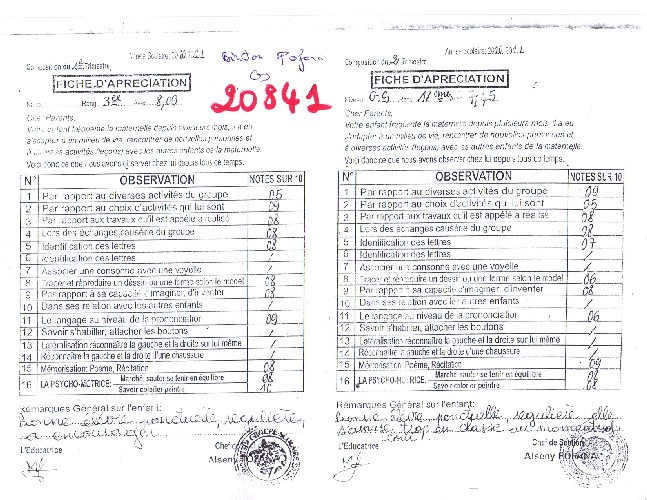 Année Scolaire: 2020 2021
Composition du 1er Trimestre
FICHE D'APRECIATION
Rang 3e 8,09
20841
Cher Parents.
Votre enfant fréquente la maternelle depuis plusieurs mois, il a du
s'adapter à un milieu de vie, rencontrer de nouvelles personnes et
à diverses activités (leçons) avec les autres enfants de la maternelle.
Voici donc ce que nous avons observer chez lui depuis tous ce temps.
N° OBSERVATION NOTES SUR 10
1 Par rapport au diverses activités du groupe 05
2 Par rapport au choix d'activités qui lui sont 09
3 Par rapport aux travaux qu'il est appélé a réalisé 08
4 Lors des échanges causérie du groupe 08
5 Identification des lettres 08
6 Identification des lettres /
7 Associer une consonne avec une voyelle /
8 Tracer et réproduire un déssin ou une forme selon le model 08
9 Par rapport à sa capacité d'imaginer, d'inventer 08
10 Dans ses relation avec les autres enfants /
11 Le langage au niveau de la prononciation 09
12 Savoir s'habiller, attacher les boutons /
13 Latéralisation réconnaître la gauche et la droite sur lui même /
14 Réconnaître la gauche et la droite d'une chaussure /
15 Mémorisation: Poème, Récitation 08
16 LA PSYCHO-MOTRICE: Marché, sauter se tenir en équilibre 08
Savoir colorier peintre 10
Rémarques Général sur l'enfant:
Bonne élève ponctuelle, régulière
a encourager
L'Educatrice
Chef de
Alseny
Année Scolaire: 2020, 2021
Composition du 2e Trimestre
FICHE D'APRECIATION
Niveau G.S 12ème 7,75
Cher Parents.
Votre enfant fréquente la maternelle depuis plusieurs mois, il a du
s'adapter à un milieu de vie, rencontrer de nouvelles personnes et
à diverses activités (leçons), avec les autres enfants de la maternelle.
Voici donc ce que nous avons observer chez lui depuis tous ce temps.
N° OBSERVATION NOTES SUR 10
1 Par rapport au diverses activités du groupe 09
2 Par rapport au choix d'activités qui lui sont 05
3 Par rapport aux travaux qu'il est appélé a réalisé 08
4 Lors des échanges causérie du groupe 08
5 Identification des lettres 07
6 Identification des lettres /
7 Associer une consonne avec une voyelle /
8 Tracer et réproduire un déssin ou une forme selon le model 06
9 Par rapport à sa capacité d'imaginer, d'inventer 08
10 Dans ses relation avec les autres enfants /
11 Le langage au niveau de la prononciation 06
12 Savoir s'habiller, attacher les boutons /
13 Latéralisation réconnaître la gauche et la droite sur lui même /
14 Réconnaître la gauche et la droite d'une chaussure /
15 Mémorisation: Poème, Récitation 09
16 LA PSYCHO-MOTRICE: Marché, sauter se tenir en équilibre 08
Savoir colorier peintre 08
Rémarques Général sur l'enfant:
Bonne élève ponctuelle, régulière elle
s'amuse trop en classe au moment du
cour
L'Educatrice
Chef de Section
Alseny FOFANA